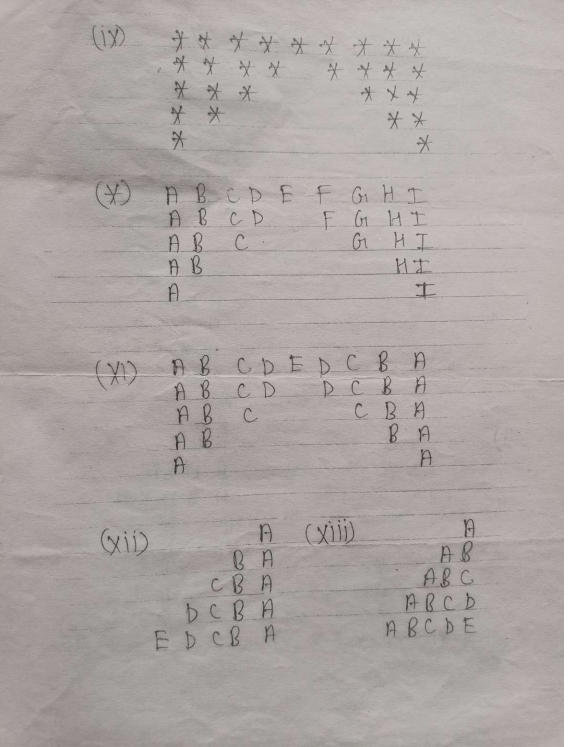 (ix) * * * * * * * * *
* * * * * * * *
* * * * * *
* * * *
* *
(X) A B C D E F G H I
A B C D F G H I
A B C G H I
A B H I
A I
(XI) A B C D E D C B A
A B C D D C B A
A B C C B A
A B B A
A A
(xii) A (xiii) A
B A A B
C B A A B C
D C B A A B C D
E D C B A A B C D E